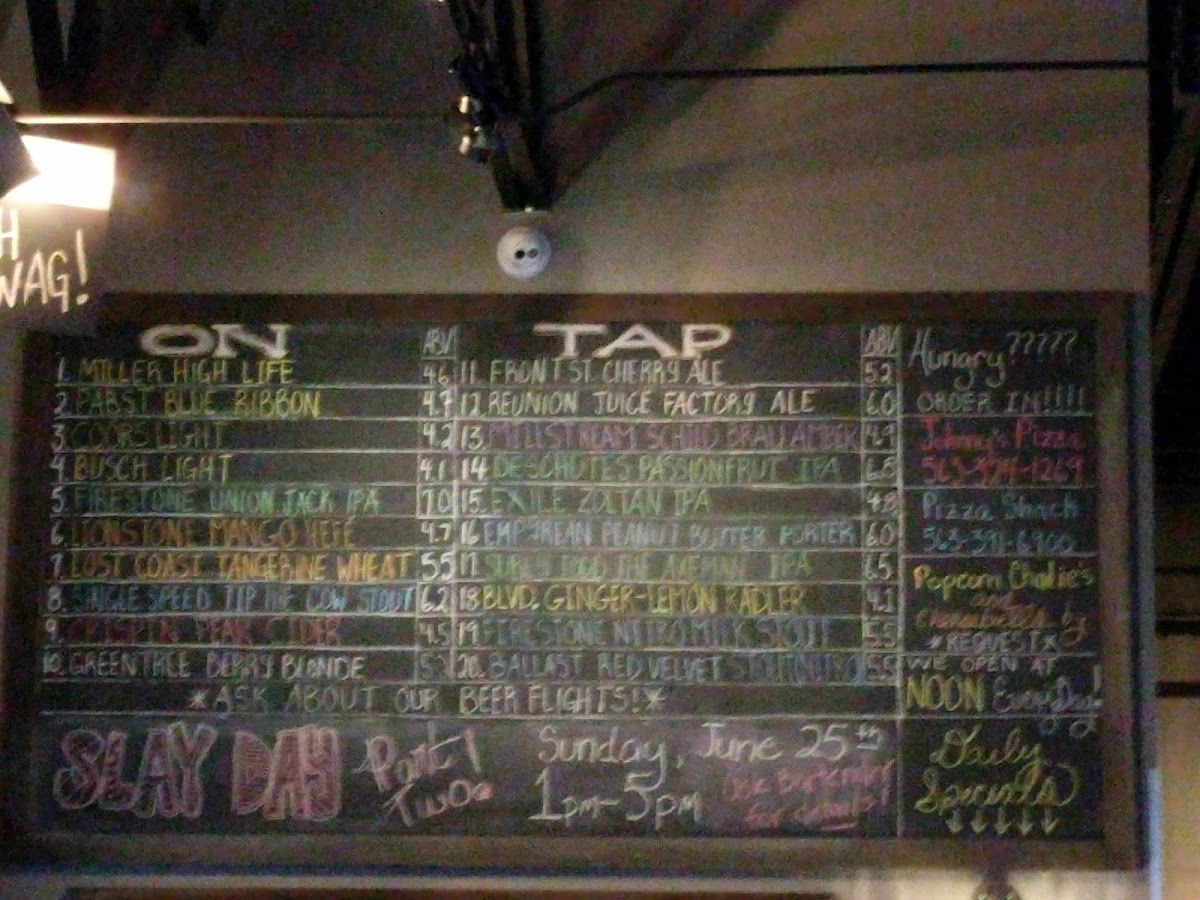 H
WAG!
ON TAP
ABV
1. MILLER HIGH LIFE 4.6
2. PABST BLUE RIBBON 4.7
3. COORS LIGHT 4.2
4. BUSCH LIGHT 4.1
5. FIRESTONE UNION JACK IPA 7.0
6. MANGO HEFE 4.7
7. LOST COAST TANGERINE WHEAT 5.5
8. SINGLE SPEED TIP THE COW STOUT 6.2
9. CRISPIN PEAR CIDER 4.5
10. GREEN TREE BERRY BLONDE
ABV
11. FRONT ST. CHERRY ALE 5.2
12. REUNION JUICE FACTORY ALE 6.0
13. MILLSTREAM SCHILD BRAU AMBER 4.9
14. DESCHUTES PASSIONFRUT IPA
15. EXILE ZOLTAN IPA 4.8
16. EMPYREAN PEANUT BUTTER PORTER 6.0
17. SURLY TODD THE AXEMAN IPA 6.5
18. BLVD. GINGER-LEMON RADLER 4.1
19. FIRESTONE NITRO MILK STOUT 5.5
20. BALLAST RED VELVET STOUT NITRO 5.5
*ASK ABOUT OUR BEER FLIGHTS!*
SLAY DAY Part Two!
Sunday, June 25th
1pm-5pm
Ask Bartender
for details!
Hungry ?????
ORDER IN!!!!
Johnny's Pizza
Pizza Shack
563-391-6900
Popcorn Charlie's
and
by
*REQUEST*
WE OPEN AT
NOON EveryDay!
Daily
Specials
↓↓↓↓↓